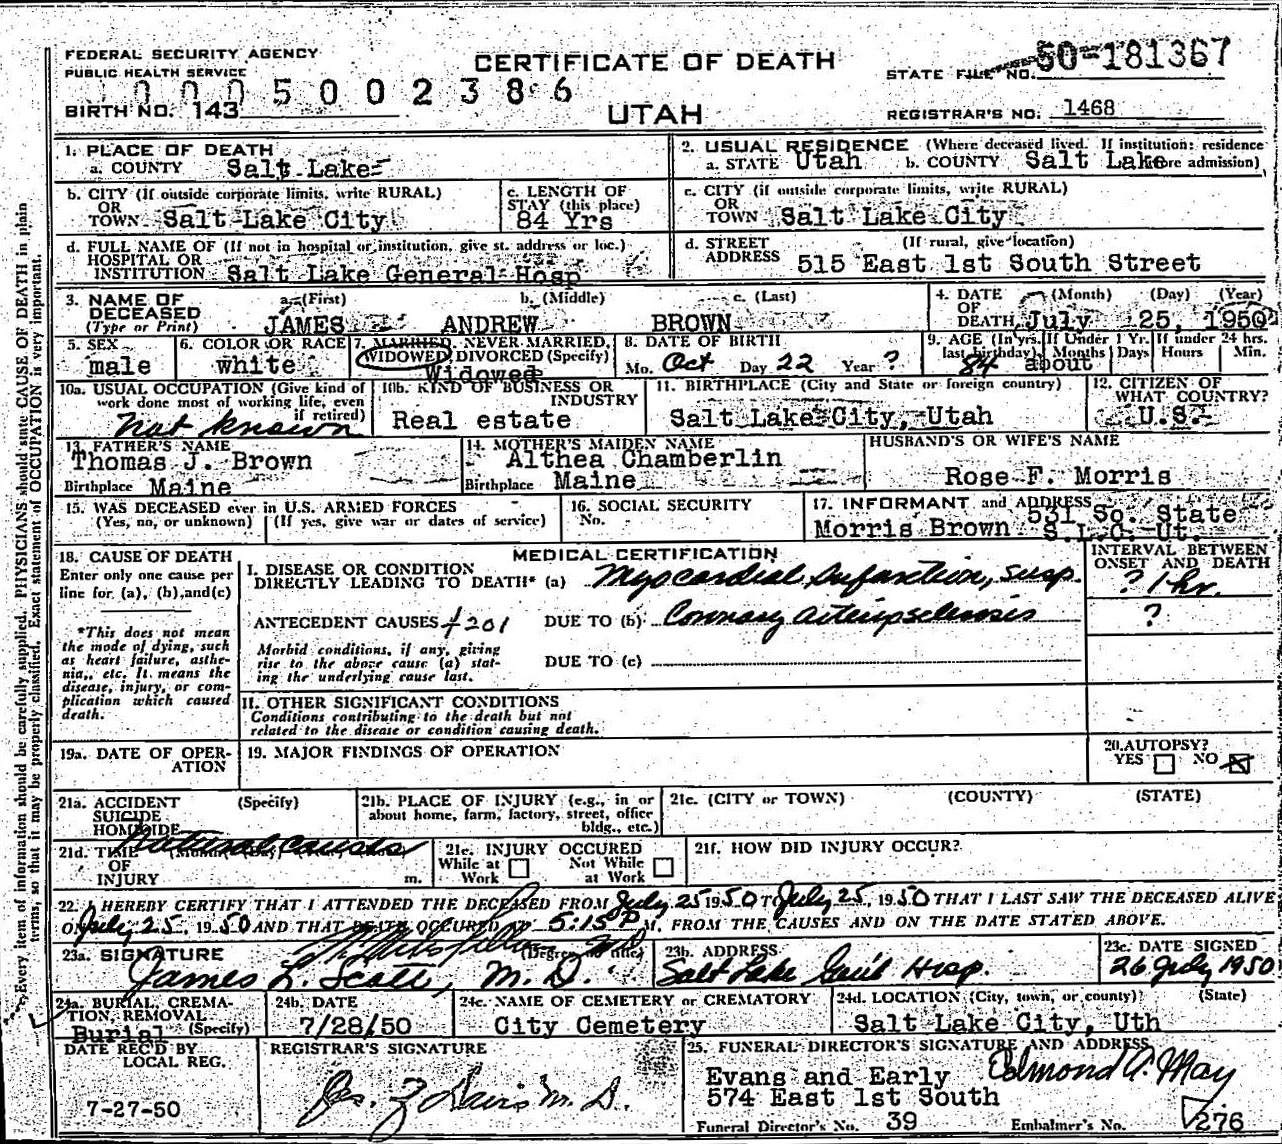 FEDERAL SECURITY AGENCY
PUBLIC HEALTH SERVICE
CERTIFICATE OF DEATH
STATE FILE NO. 50-181367
0005002386
BIRTH NO. 143
UTAH
REGISTRAR'S NO. 1468
1. PLACE OF DEATH
a. COUNTY Salt Lake
2. USUAL RESIDENCE (Where deceased lived. If institution: residence
a. STATE Utah b. COUNTY Salt Lake before admission)
b. CITY (If outside corporate limits, write RURAL)
OR
TOWN Salt Lake City
c. LENGTH OF
STAY (this place)
84 Yrs
c. CITY (if outside corporate limits, write RURAL)
OR
TOWN Salt Lake City
d. FULL NAME OF (If not in hospital or institution, give st. address or loc.)
HOSPITAL OR
INSTITUTION Salt Lake General Hosp
d. STREET (If rural, give location)
ADDRESS 515 East 1st South Street
3. NAME OF DECEASED
(Type or Print)
a. (First) b. (Middle) c. (Last)
JAMES ANDREW BROWN
4. DATE (Month) (Day) (Year)
OF
DEATH July 25, 1950
5. SEX
male
6. COLOR OR RACE
white
7. MARRIED, NEVER MARRIED,
WIDOWED, DIVORCED (Specify)
Widowed
8. DATE OF BIRTH
Mo. Oct Day 22 Year ?
9. AGE (In yrs. last birthday) If Under 1 Yr. If under 24 hrs.
Months Days Hours Min.
84 about
10a. USUAL OCCUPATION (Give kind of
work done most of working life, even
if retired)
Not known
10b. KIND OF BUSINESS OR
INDUSTRY
Real estate
11. BIRTHPLACE (City and State or foreign country)
Salt Lake City, Utah
12. CITIZEN OF
WHAT COUNTRY?
U.S.
13. FATHER'S NAME
Thomas J. Brown
Birthplace Maine
14. MOTHER'S MAIDEN NAME
Althea Chamberlin
Birthplace Maine
HUSBAND'S OR WIFE'S NAME
Rose F. Morris
15. WAS DECEASED ever in U.S. ARMED FORCES
(Yes, no, or unknown) (If yes, give war or dates of service)
16. SOCIAL SECURITY
No.
17. INFORMANT and ADDRESS
531 So. State
Morris Brown S.L.C. Ut.
18. CAUSE OF DEATH
Enter only one cause per
line for (a), (b), and (c)
*This does not mean
the mode of dying, such
as heart failure, asthe-
nia, etc. It means the
disease, injury, or com-
plication which caused
death.
MEDICAL CERTIFICATION
INTERVAL BETWEEN
ONSET AND DEATH
I. DISEASE OR CONDITION
DIRECTLY LEADING TO DEATH* (a) Myocardial Infarction, susp. ? 1 hr.
ANTECEDENT CAUSES 4201 DUE TO (b) Coronary Arteriosclerosis ?
Morbid conditions, if any, giving
rise to the above cause (a) stat-
ing the underlying cause last.
DUE TO (c)
II. OTHER SIGNIFICANT CONDITIONS
Conditions contributing to the death but not
related to the disease or condition causing death.
19a. DATE OF OPER-
ATION
19. MAJOR FINDINGS OF OPERATION
20. AUTOPSY?
YES NO
21a. ACCIDENT (Specify)
SUICIDE
HOMICIDE
Natural causes
21b. PLACE OF INJURY (e.g., in or
about home, farm, factory, street, office
bldg., etc.)
21c. (CITY or TOWN) (COUNTY) (STATE)
21d. TIME
OF
INJURY m.
21e. INJURY OCCURED
While at Work Not While at Work
21f. HOW DID INJURY OCCUR?
22. I HEREBY CERTIFY THAT I ATTENDED THE DECEASED FROM July 25 1950 TO July 25, 1950 THAT I LAST SAW THE DECEASED ALIVE
ON July 25, 1950 AND THAT DEATH OCCURED AT 5:15 P M, FROM THE CAUSES AND ON THE DATE STATED ABOVE.
23a. SIGNATURE (Degree or title)
James L. Scott, M. D.
23b. ADDRESS
Salt Lake Gen'l Hosp.
23c. DATE SIGNED
26 July 1950
24a. BURIAL, CREMA-
TION, REMOVAL
Burial (Specify)
24b. DATE
7/28/50
24c. NAME OF CEMETERY or CREMATORY
City Cemetery
24d. LOCATION (City, town, or county) (State)
Salt Lake City, Uth
DATE REC'D BY
LOCAL REG.
7-27-50
REGISTRAR'S SIGNATURE
Jas. Z Davis M. D.
25. FUNERAL DIRECTOR'S SIGNATURE AND ADDRESS
Edmond A. May
Evans and Early
574 East 1st South
Funeral Director's No. 39 Embalmer's No. 276
Every item of information should be carefully supplied. PHYSICIANS should state CAUSE OF DEATH in plain
terms, so that it may be properly classified. Exact statement of OCCUPATION is very important.